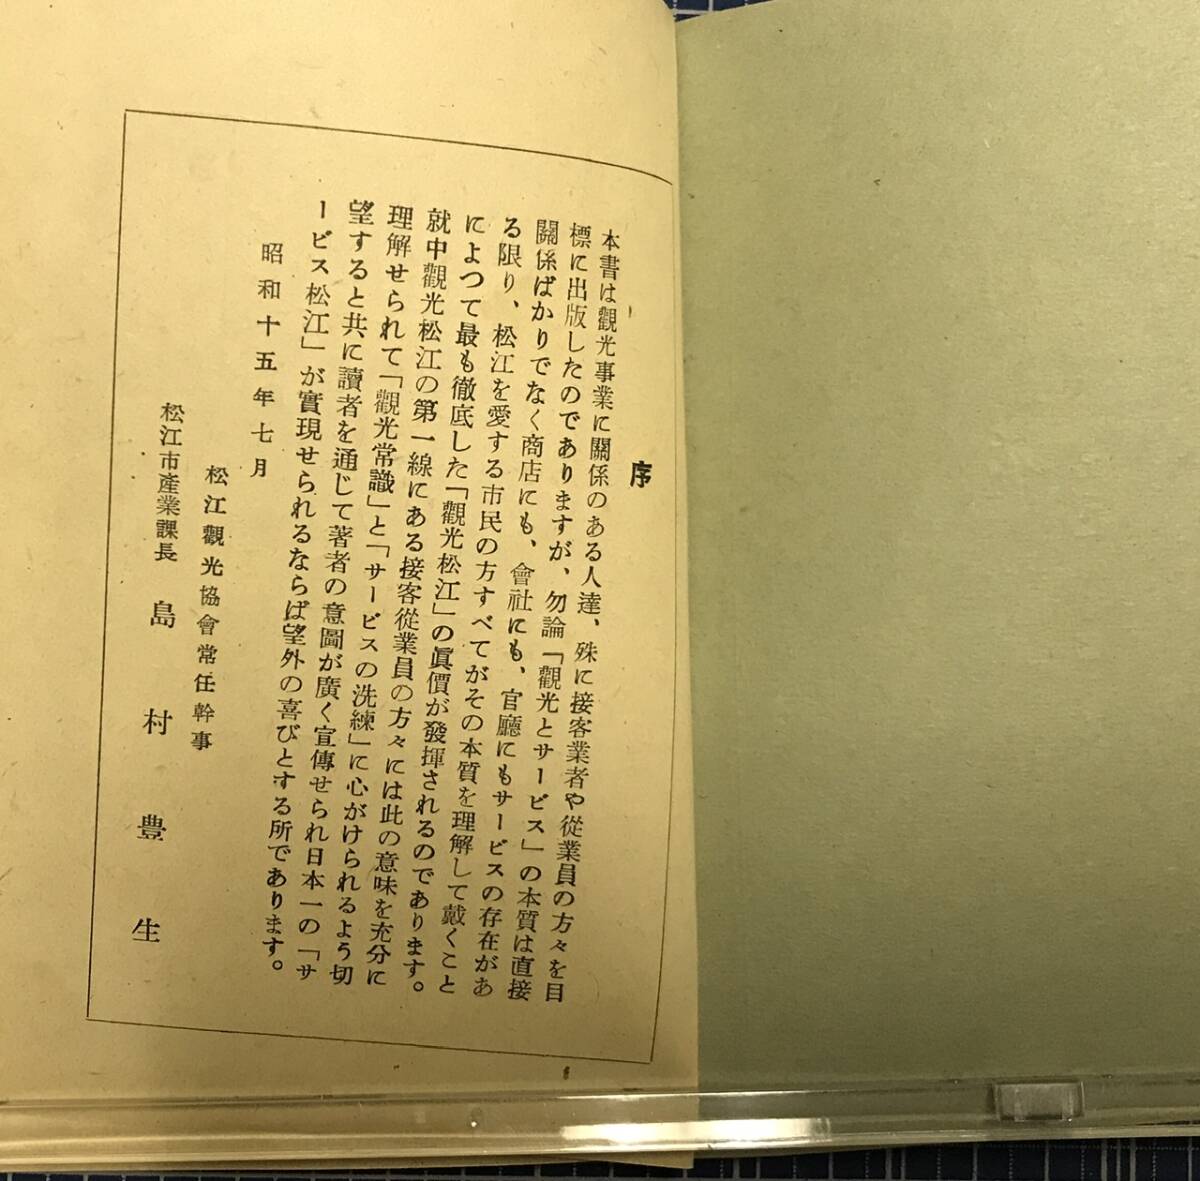 序
本書は觀光事業に關係のある人達、殊に接客業者や從業員の方々を目
標に出版したのでありますが、勿論「觀光とサービス」の本質は直接
關係ばかりでなく商店にも、會社にも、官廳にもサービスの存在があ
る限り、松江を愛する市民の方すべてがその本質を理解して戴くこと
によつて最も徹底した「觀光松江」の眞價が發揮されるのであります。
就中觀光松江の第一線にある接客從業員の方々には此の意味を充分に
理解せられて「觀光常識」と「サービスの洗練」に心がけられるよう切
望すると共に讀者を通じて著者の意圖が廣く宣傳せられ日本一の「サ
ービス松江」が實現せられるならば望外の喜びとする所であります。
昭和十五年七月
松江觀光協會常任幹事
松江市產業課長 島村豊生